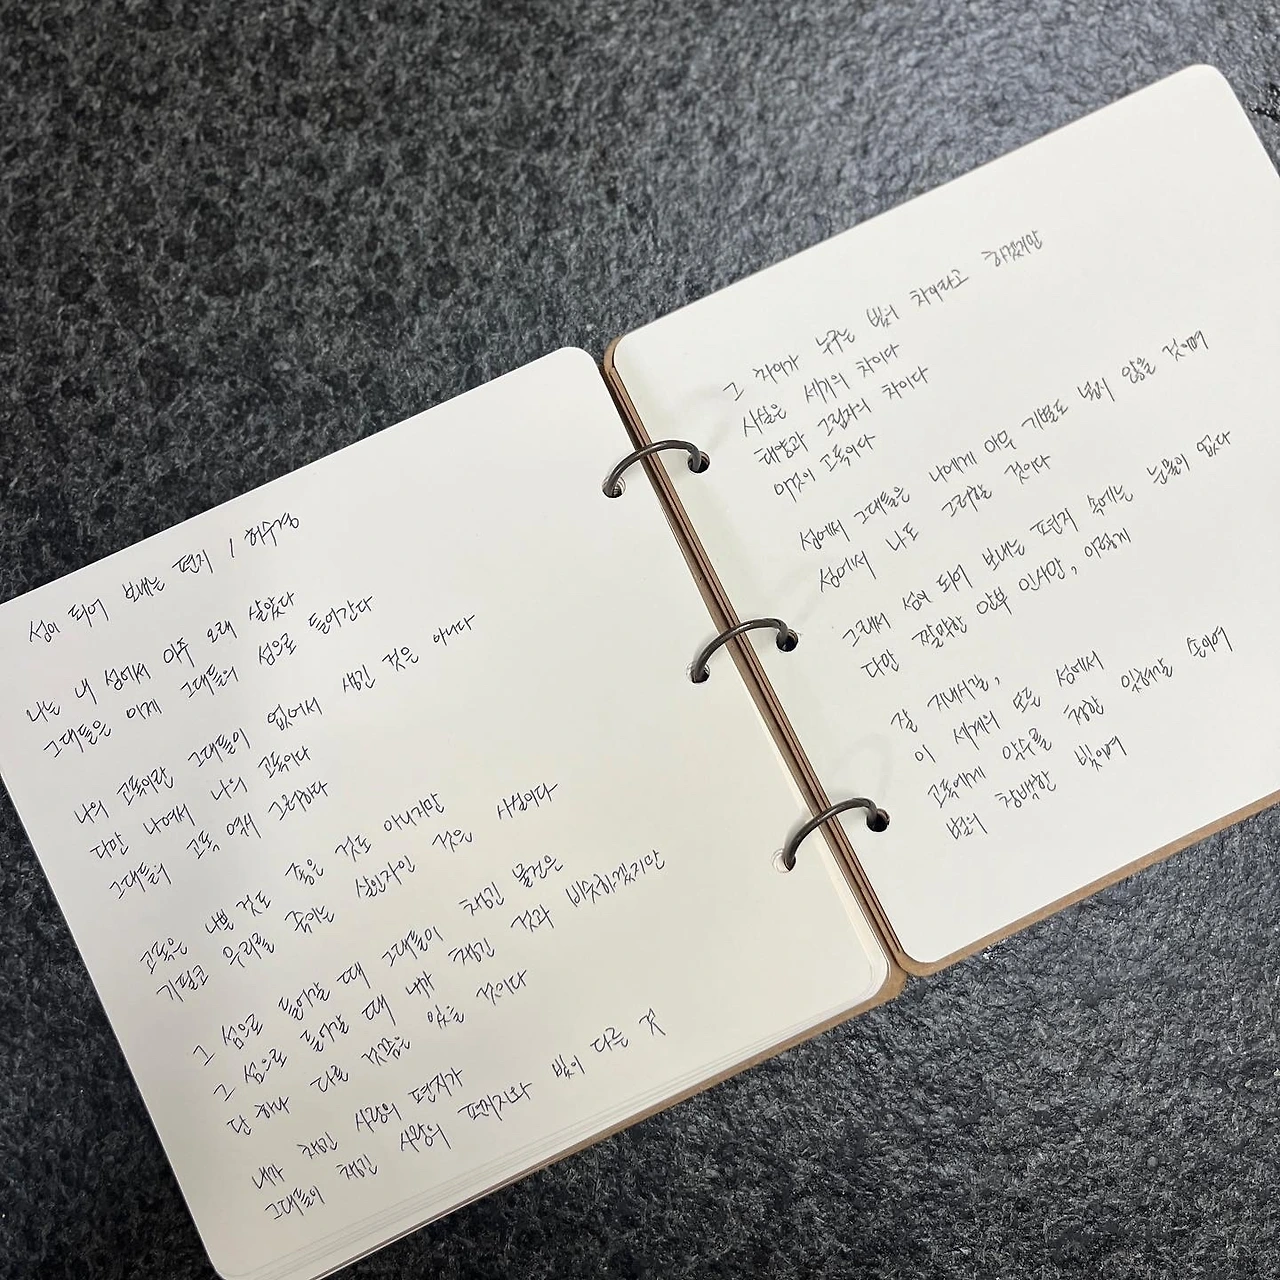 섬이 되어 보내는 편지 / 허수경
나는 내 섬에서 아주 오래 살았다
그대들은 이제 그대들의 섬으로 들어간다
나의 고독이란 그대들이 없어서 생긴 것은 아니다
다만 나여서 나의 고독이다
그대들의 고독 역시 그러하다
고독은 나쁠 것도 좋을 것도 아니지만
기필코 우리를 죽이는 살인자인 것은 사실이다
그 섬으로 들어갈 때 그대들이 챙긴 물건은
그 섬으로 들어갈 때 내가 챙긴 것과 비슷하겠지만
단 하나 다른 것쯤은 있을 것이다
내가 챙긴 사랑의 편지가
그대들이 챙긴 사랑의 편지와 빛이 다른 것
그 차이가 누구는 빛의 차이라고 하겠지만
사실은 세기의 차이다
태양과 그림자의 차이다
이것이 고독이다
섬에서 그대들은 나에게 아무 기별도 넣지 않을 것이며
섬에서 나도 그러할 것이다
그래서 섬이 되어 보내는 편지 속에는 눈물이 없다
다만 짤막한 안부 인사만, 이렇게
잘 지내시길,
이 세계의 모든 섬에서
고독에게 악수를 청한 잊혀갈 손이여
별의 창백한 빛이여